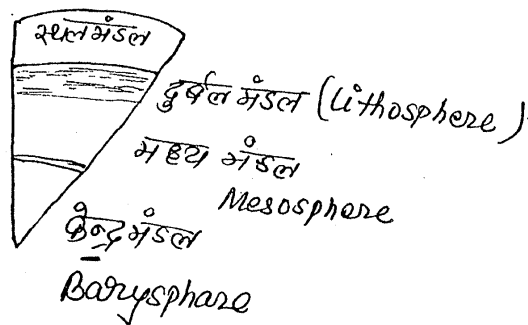 स्थलमंडल
दुर्बल मंडल (Lithosphere)
मध्य मंडल
Mesosphere
केन्द्र मंडल
Barysphare